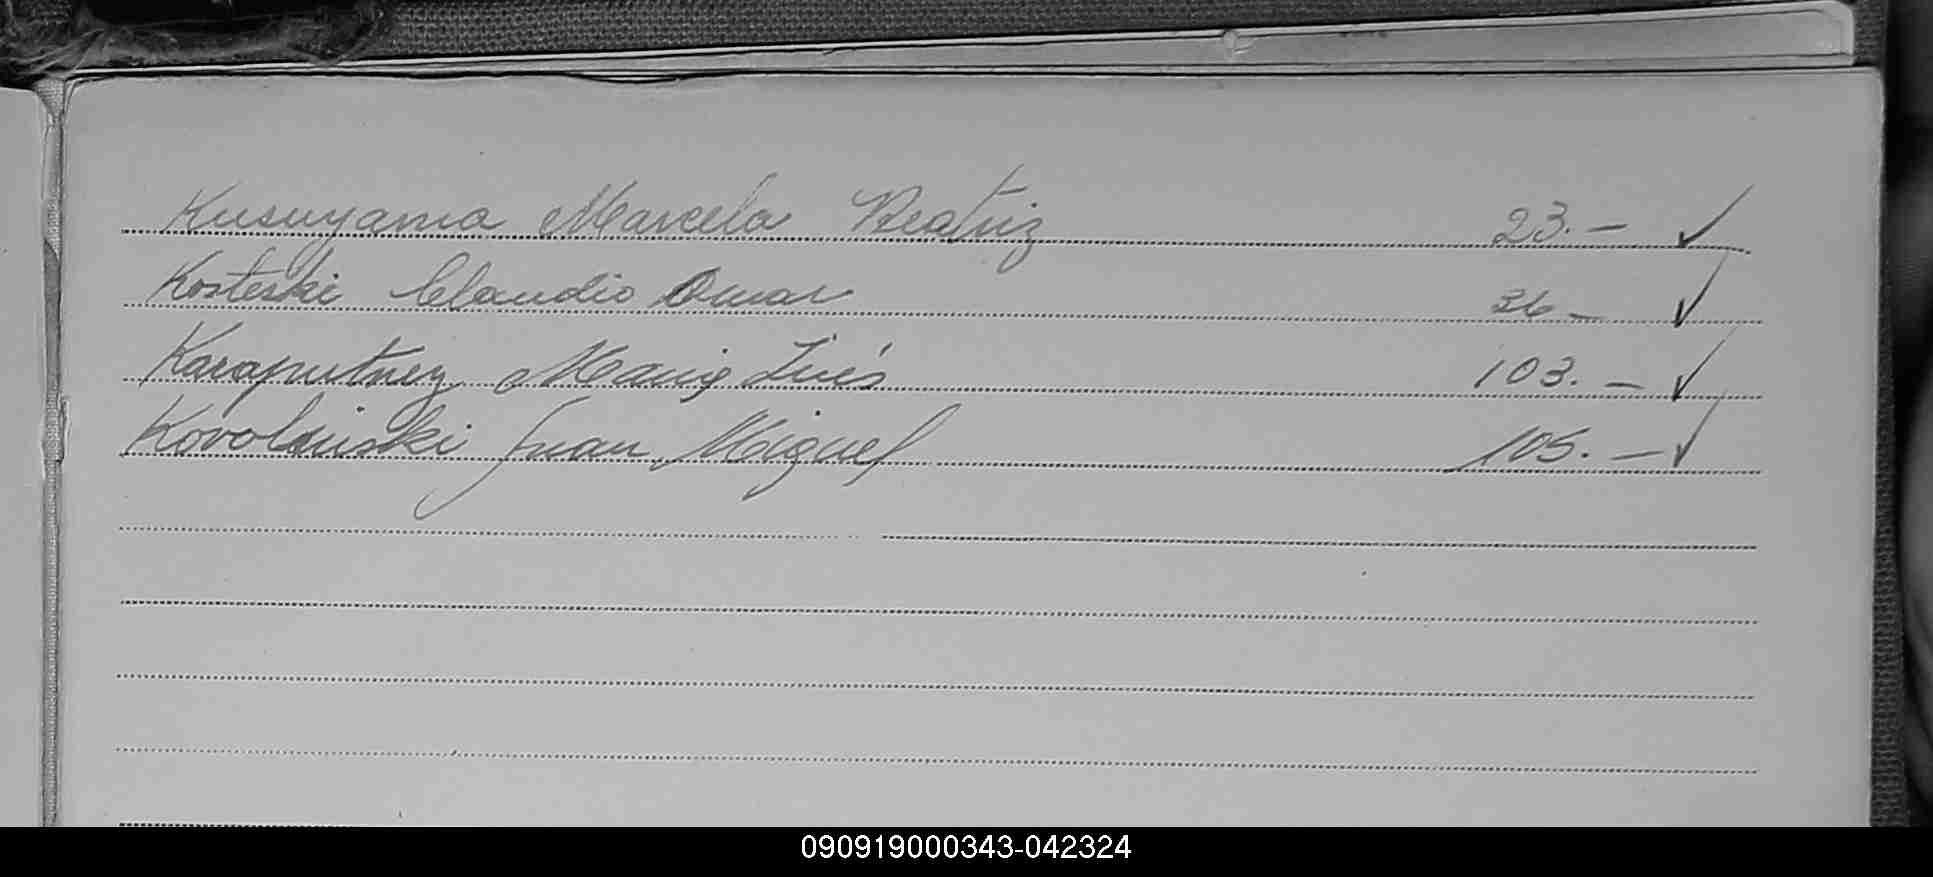 Kusuyama Marcela Beatriz 23.- ✓
Kosteski Claudio Omar 36- ✓
Karaputnez María Inés 103.- ✓
Juan Miguel 105.- ✓
090919000343-042324